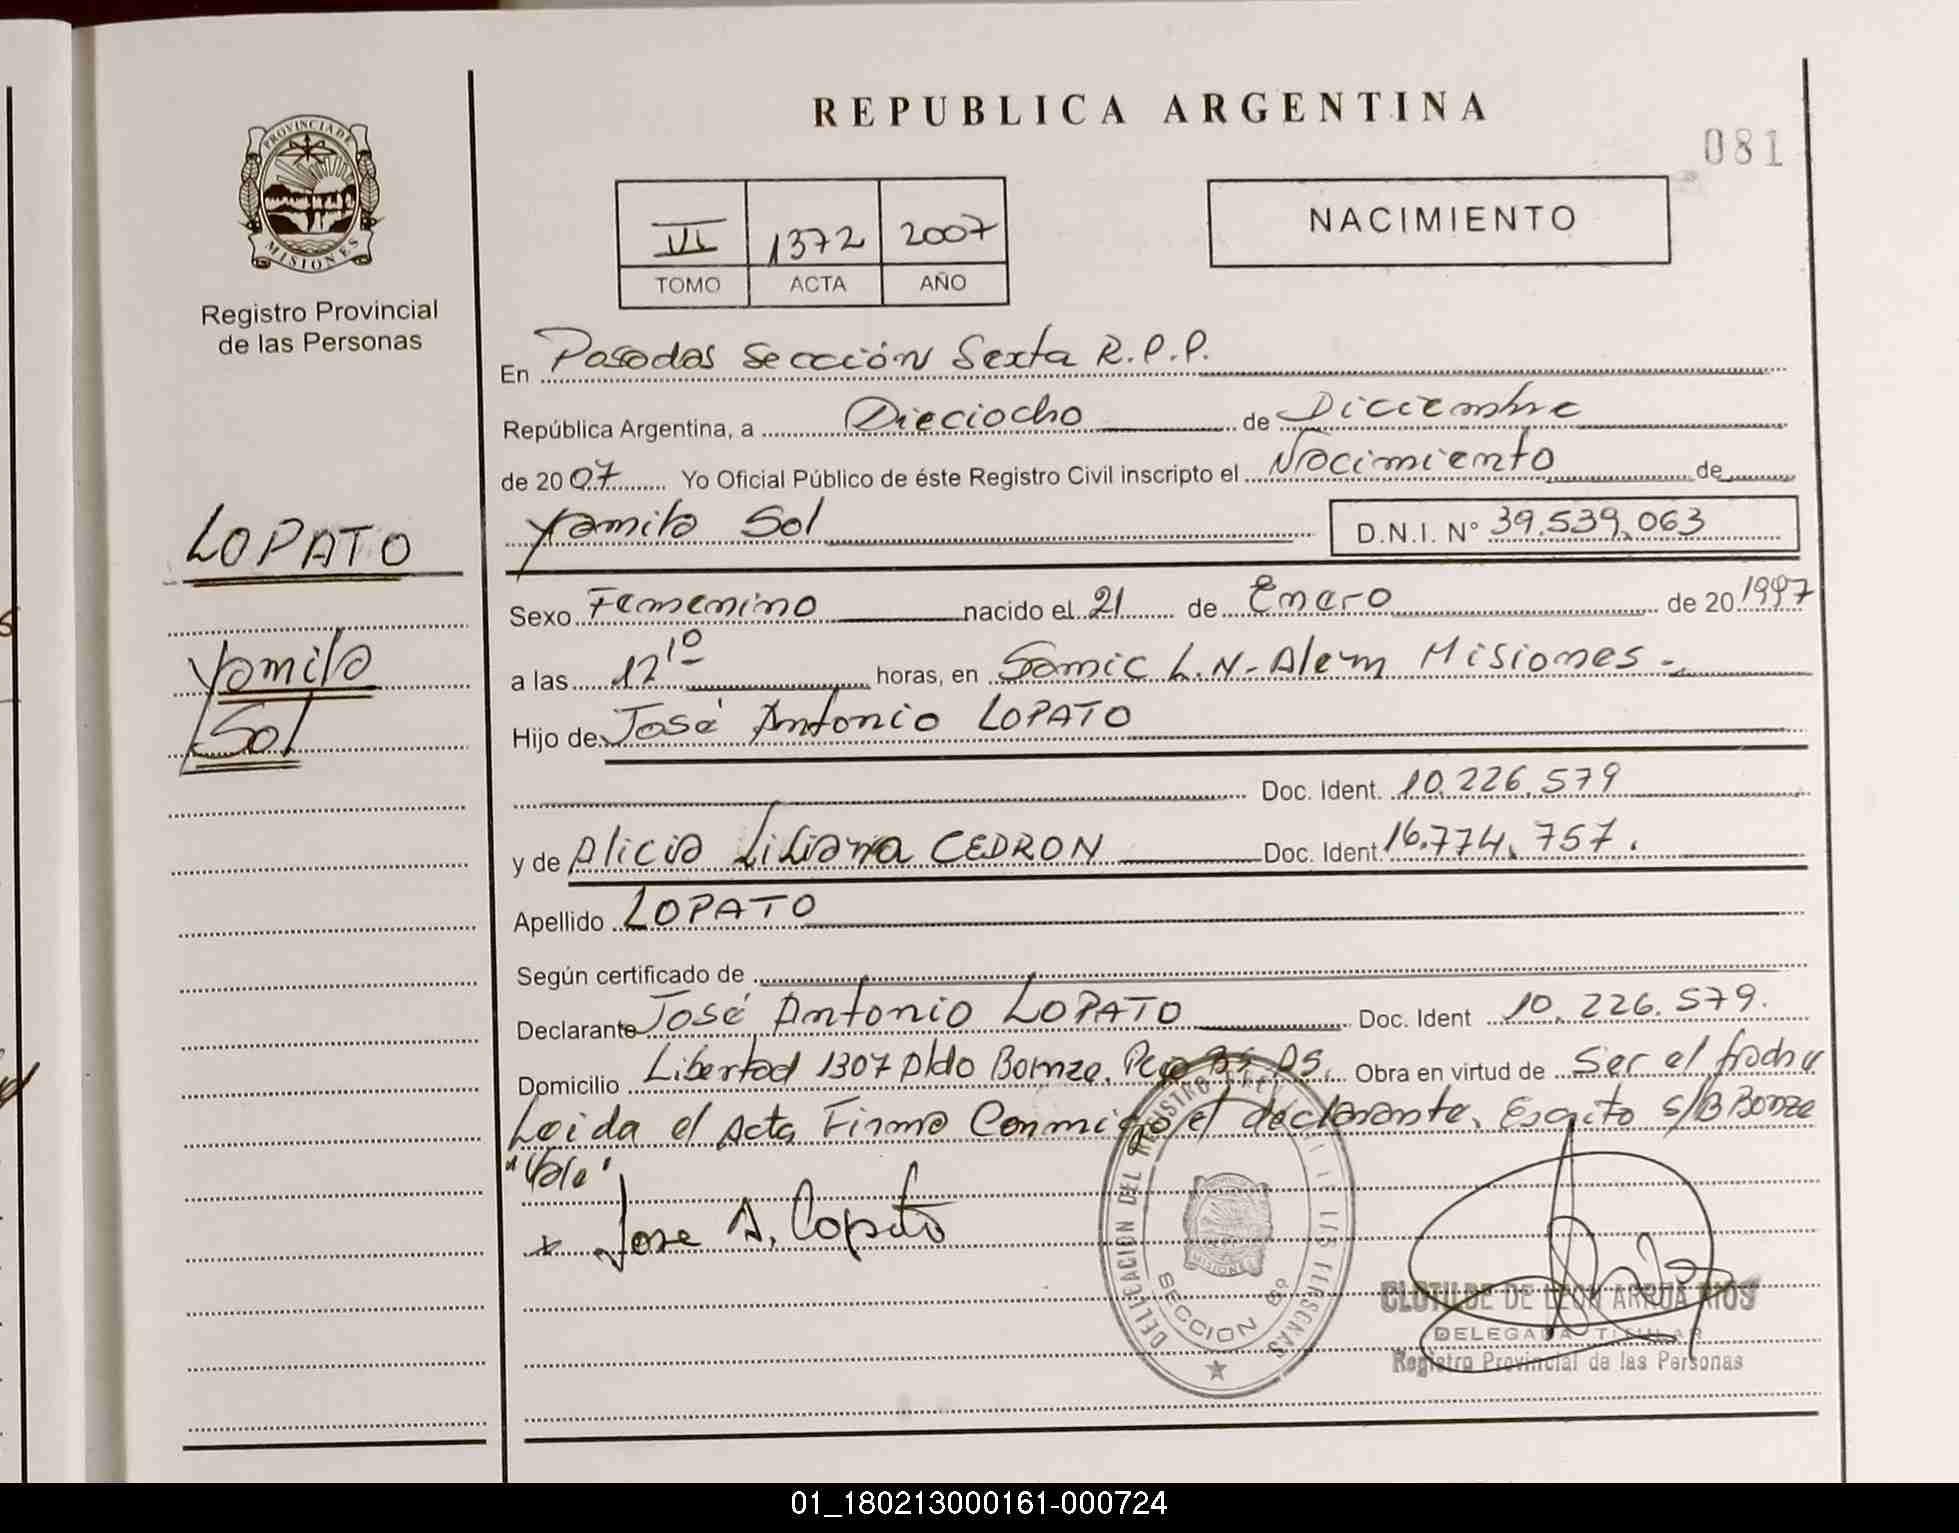 REPUBLICA ARGENTINA
081
PROVINCIA DE MISIONES
Registro Provincial
de las Personas
VI 1372 2007
TOMO ACTA AÑO
NACIMIENTO
En Posadas Sección Sexta R.P.P.
República Argentina, a Dieciocho de Diciembre
de 2007 Yo Oficial Público de éste Registro Civil inscripto el Nacimiento de
Yamila Sol D.N.I. N° 39.539.063
LOPATO
Yamila
Sol
Sexo Femenino nacido el 21 de Enero de 20 1997
a las 12 10 horas, en Samic L.N-Alem Misiones -
Hijo de José Antonio LOPATO
Doc. Ident. 10.226.579
y de Alicia Liliana CEDRON Doc. Ident. 16.774.757.
Apellido LOPATO
Según certificado de
Declarante José Antonio LOPATO Doc. Ident 10.226.579.
Domicilio Libertad 1307 Aldo Bs AS. Obra en virtud de Ser el
Leida el Acta Firma Conmigo el declarante. Escrito s/B
"Vale"
x Jose A. Lopato
DELEGACION DEL REGISTRO DE LAS PERSONAS
MISIONES
SECCION 6º
CLOTILDE DE LEON ARRUA RIOS
DELEGADA TITULAR
Registro Provincial de las Personas
01_180213000161-000724